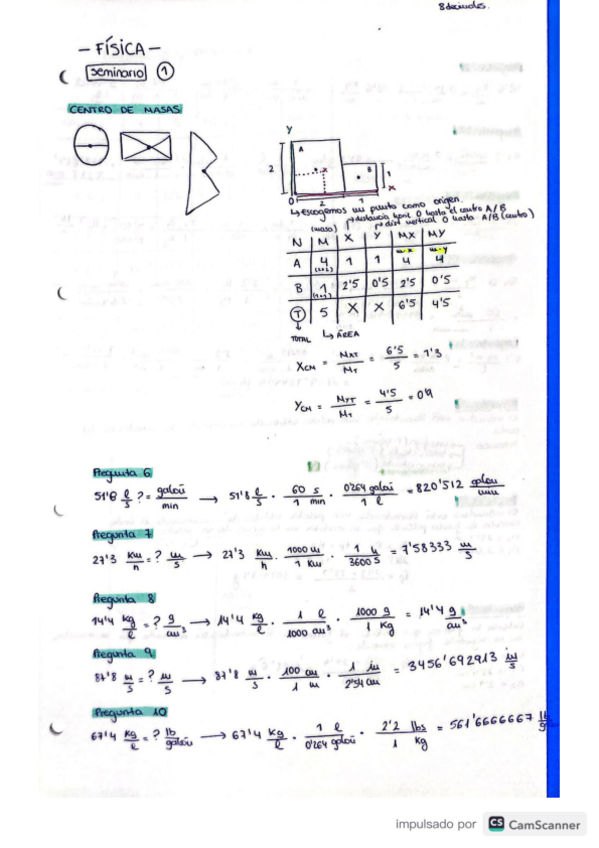 8 decimales.
- FÍSICA -
seminario 1
CENTRO DE MASAS
Y
A
B
2
1
x
0
2
1
↳ escogemos un punto como origen.
distancia horiz 0 hasta el centro A/B
dist vertical 0 hasta A/B (centro)
(masa)
N M X Y MX MY
m·x m·y
A 4 1 1 4 4
(2x2)
B 1 2'5 0'5 2'5 0'5
(1x1)
T 5 X X 6'5 4'5
TOTAL ↳ ÁREA
XCM = MXT / MT = 6'5 / 5 = 1'3
YCM = MYT / MT = 4'5 / 5 = 0'9
Pregunta 6
51'8 l/s ? = galoń/min → 51'8 l/s · 60 s / 1 min · 0'264 galoń / 1 l = 820'512 galoń/min
Pregunta 7
27'3 Km/h = ? m/s → 27'3 Km/h · 1000 m / 1 Km · 1 h / 3600 s = 7'58333 m/s
Pregunta 8
14'4 kg/l = ? g/cm³ → 14'4 kg/l · 1 l / 1000 cm³ · 1000 g / 1 Kg = 14'4 g/cm³
Pregunta 9
87'8 m/s = ? in/s → 87'8 m/s · 100 cm / 1 m · 1 in / 2'54 cm = 3456'692913 in/s
Pregunta 10
67'4 kg/l = ? lb/galoń → 67'4 kg/l · 1 l / 0'264 galoń · 2'2 lbs / 1 kg = 561'6666667 lb/g
impulsado por CS CamScanner